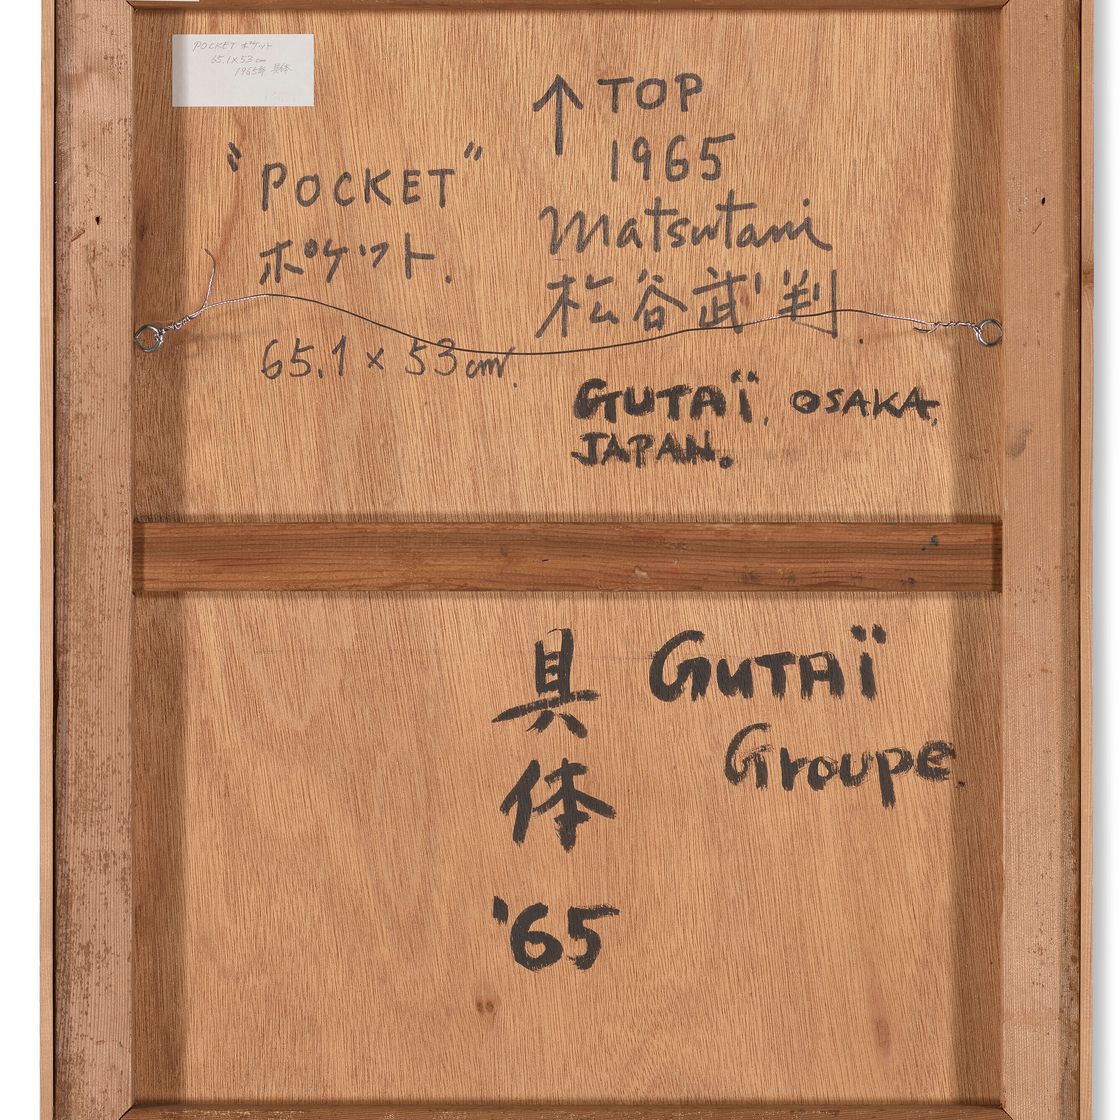 POCKET ポケット
65.1×53cm
1965年 具体
↑ TOP
1965
"POCKET"
ポケット.
Matsutani
松谷武判.
65.1 × 53 cm.
GUTAÏ, OSAKA,
JAPAN.
具体
'65
GUTAÏ
Groupe.